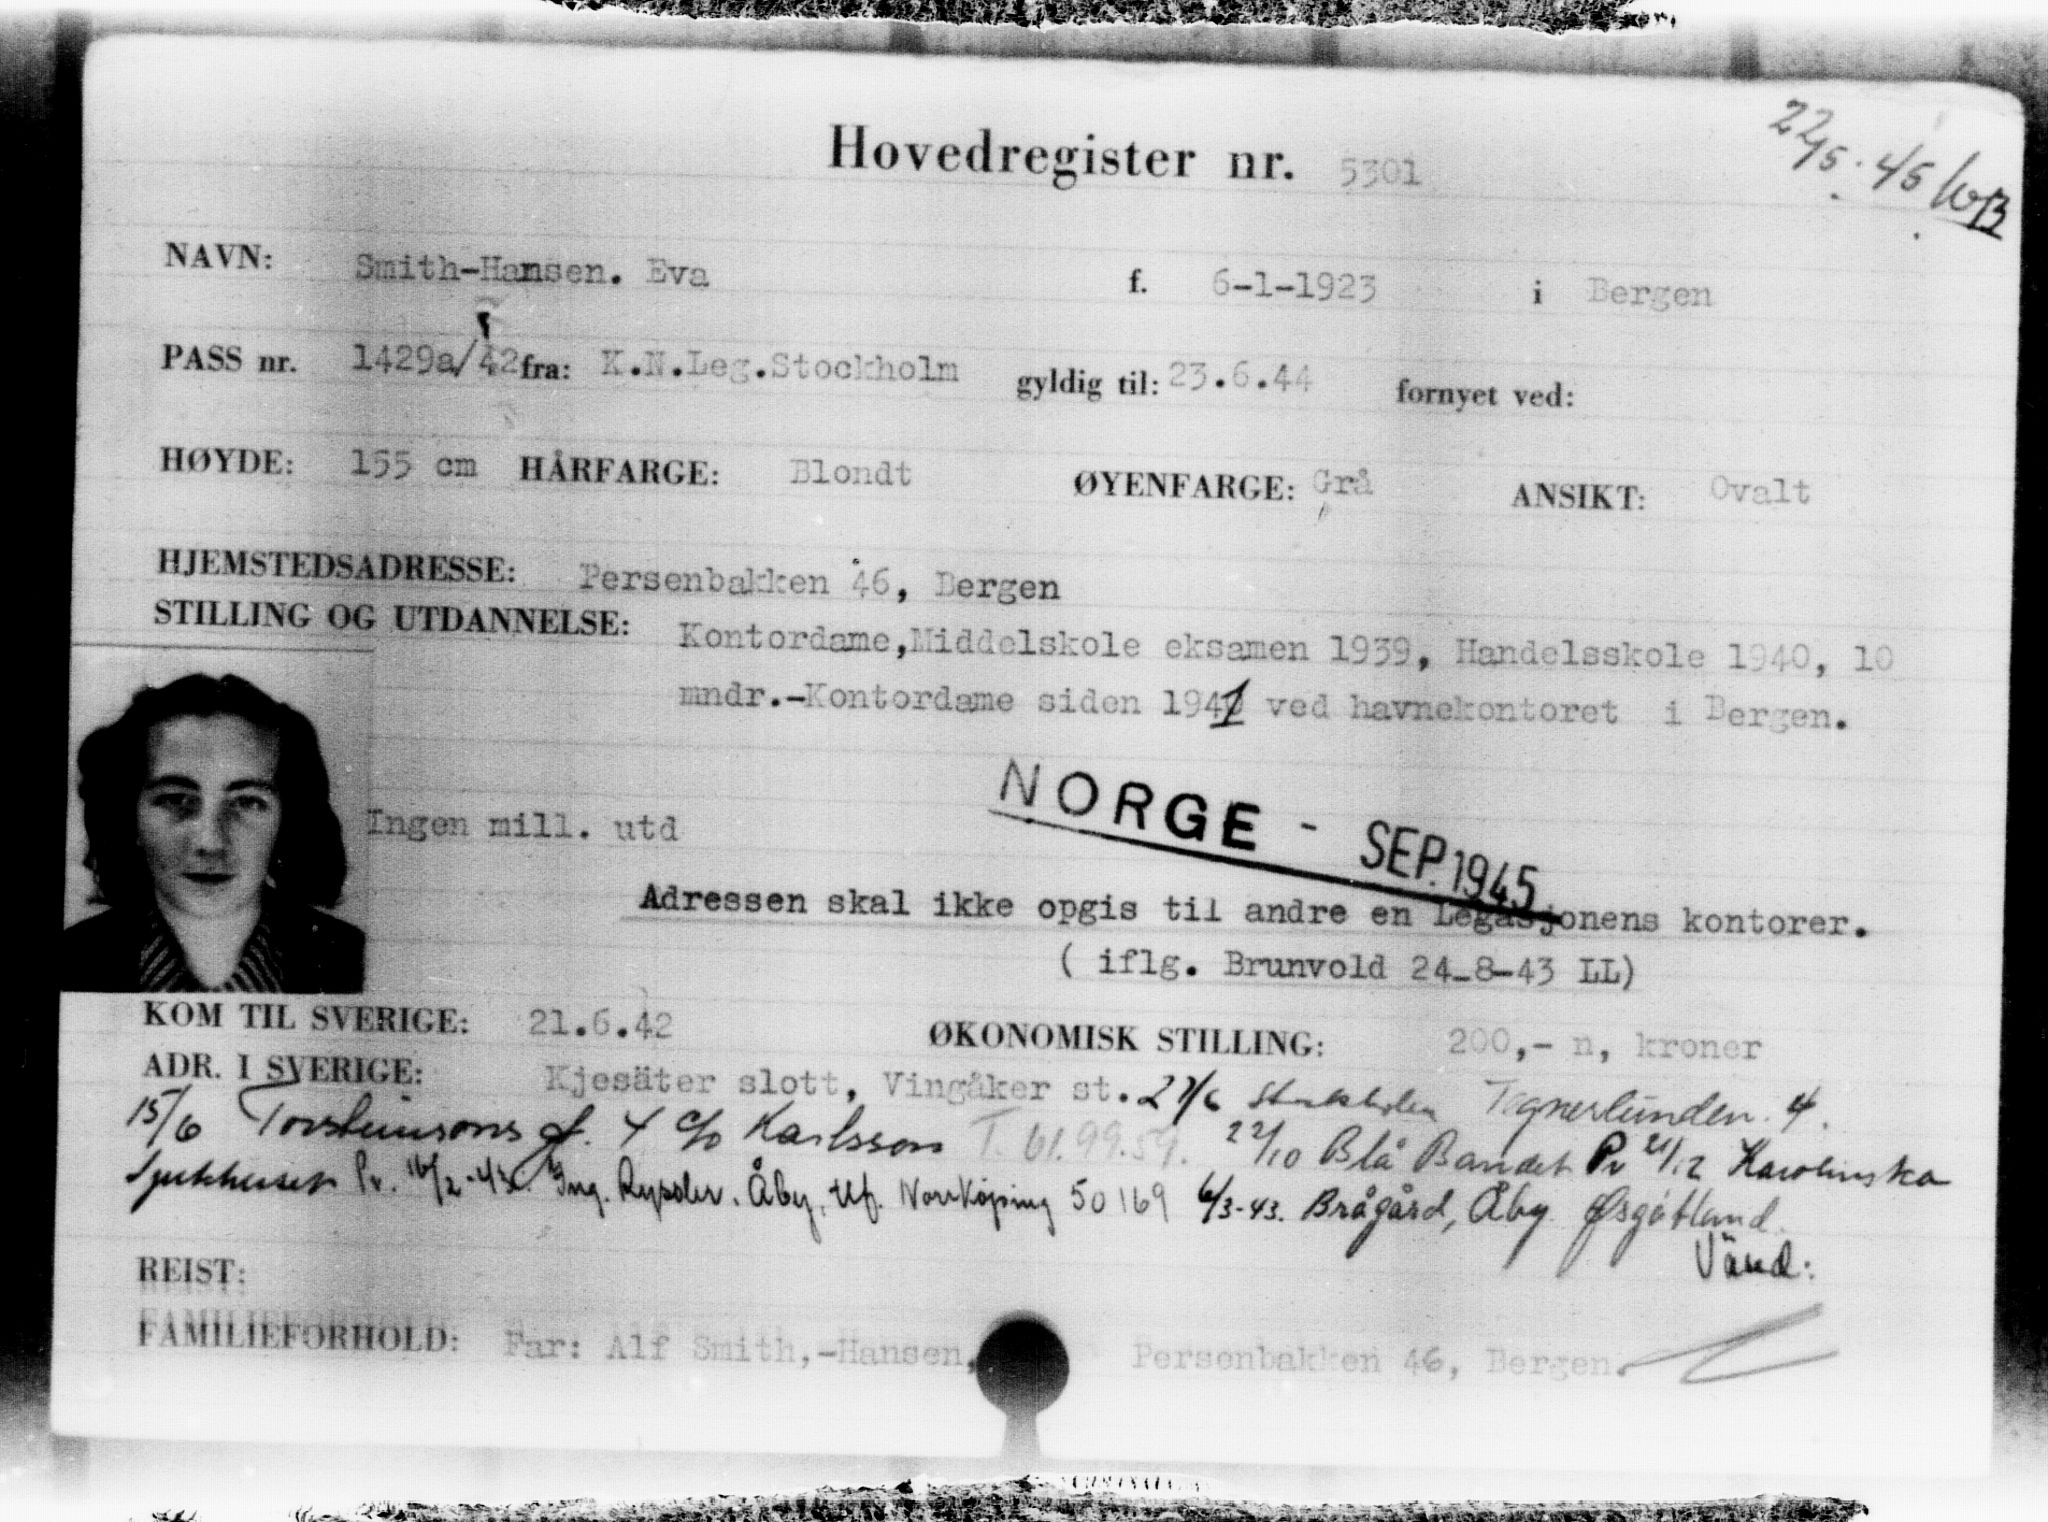 Hovedregister nr. 5301
22/5.45
NAVN: Smith-Hansen. Eva f. 6-1-1923 i Bergen
PASS nr. 1429a/42 fra: K.N.Leg.Stockholm gyldig til: 23.6.44 fornyet ved:
HØYDE: 155 cm HÅRFARGE: Blondt ØYENFARGE: Grå ANSIKT: Ovalt
HJEMSTEDSADRESSE: Persenbakken 46, Bergen
STILLING OG UTDANNELSE: Kontordame,Middelskole eksamen 1939, Handelsskole 1940, 10
mndr.-Kontordame siden 1941 ved havnekontoret i Bergen.
NORGE - SEP. 1945
Ingen mill. utd
Adressen skal ikke opgis til andre en Legasjonens kontorer.
( iflg. Brunvold 24-8-43 LL)
KOM TIL SVERIGE: 21.6.42 ØKONOMISK STILLING: 200,- n, kroner
ADR. I SVERIGE: Kjesäter slott, Vingåker st. 27/6 Stockholm Tegnerlunden. 4.
15/6 Torstensons g. 4 c/o Karlsson T. 61.99.59. 22/10 Blå Bandet Pv 21/12 Karolinska
Sjukhuset Pv. 16/2-43. Ing. Åby, tlf. Norrköping 50169 6/3-43. Brågård, Åby Øsgötland.
Vänd:
REIST:
FAMILIEFORHOLD: Far: Alf Smith,-Hansen, Persenbakken 46, Bergen.